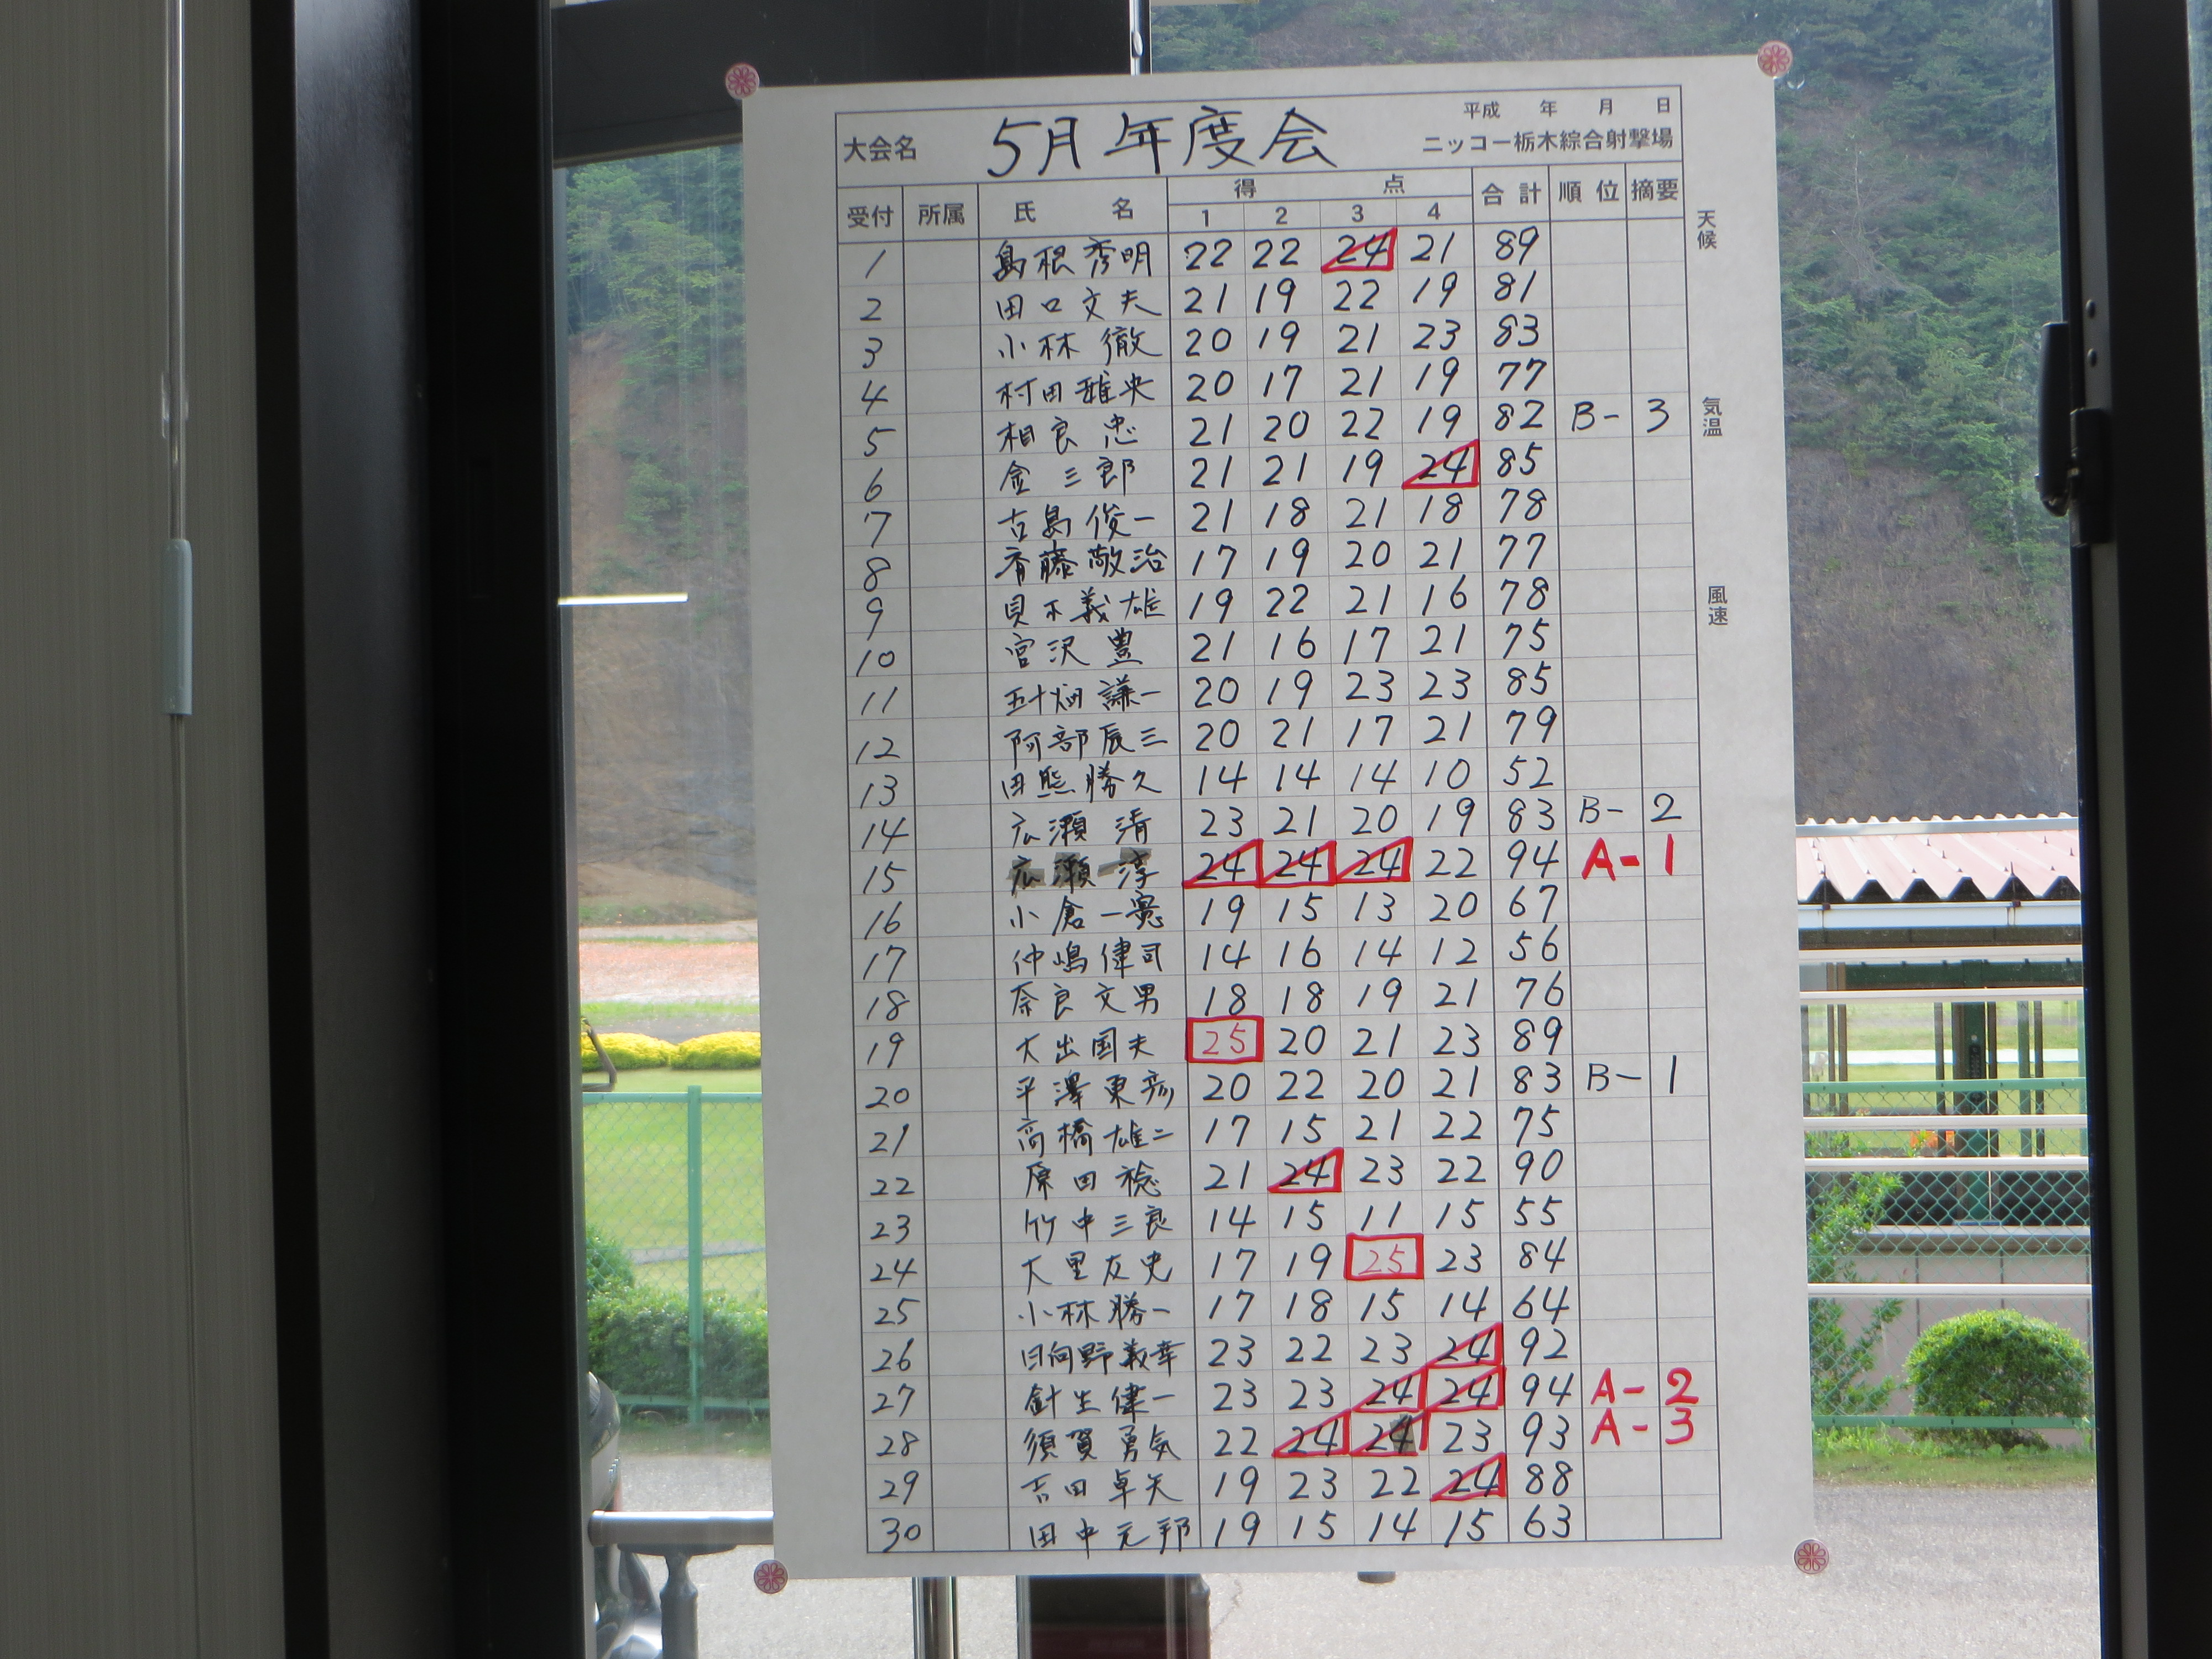 平成 年 月 日
大会名 5月年度会 ニッコー栃木綜合射撃場
受付 所属 氏名 得点 合計 順位 摘要
1 2 3 4
天候
気温
風速
1 島根秀明 22 22 24 21 89
2 田口文夫 21 19 22 19 81
3 小林徹 20 19 21 23 83
4 村田雅央 20 17 21 19 77
5 相良忠 21 20 22 19 82 B-3
6 金三郎 21 21 19 24 85
7 古島俊一 21 18 21 18 78
8 斉藤敬治 17 19 20 21 77
9 貝木義雄 19 22 21 16 78
10 宮沢豊 21 16 17 21 75
11 五十畑謙一 20 19 23 23 85
12 阿部辰三 20 21 17 21 79
13 田熊勝久 14 14 14 10 52
14 広瀬清 23 21 20 19 83 B-2
15 広瀬淳 24 24 24 22 94 A-1
16 小倉一寛 19 15 13 20 67
17 仲嶋健司 14 16 14 12 56
18 奈良文男 18 18 19 21 76
19 大出国夫 25 20 21 23 89
20 平澤東彦 20 22 20 21 83 B-1
21 高橋雄二 17 15 21 22 75
22 原田稔 21 24 23 22 90
23 竹中三良 14 15 11 15 55
24 大里友 17 19 25 23 84
25 小林勝一 17 18 15 14 64
26 日向野義幸 23 22 23 24 92
27 針生健一 23 23 24 24 94 A-2
28 須賀勇気 22 24 24 23 93 A-3
29 吉田卓矢 19 23 22 24 88
30 田中元邦 19 15 14 15 63